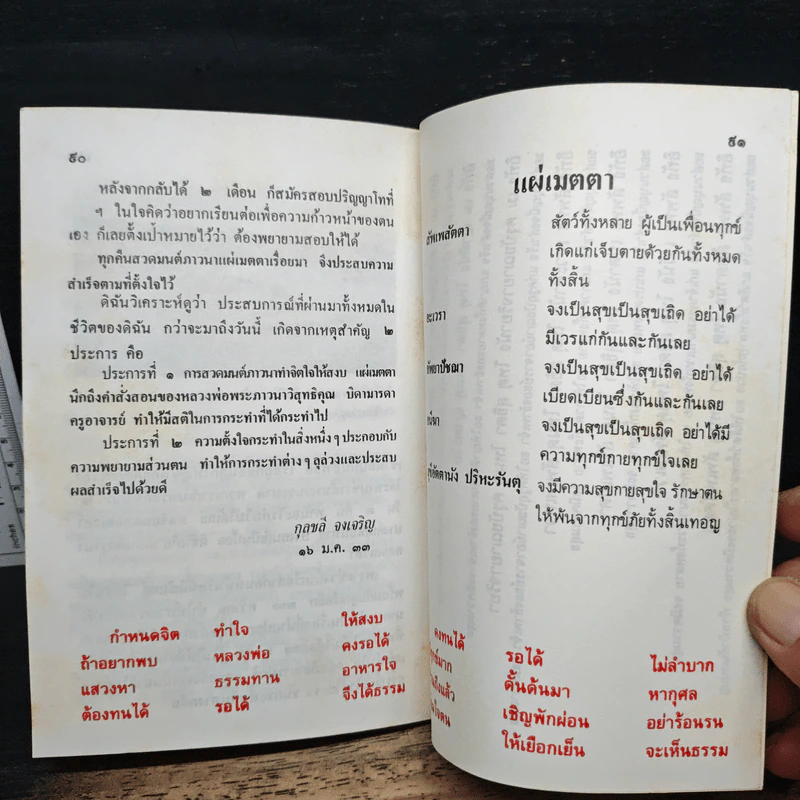 ๕๐
หลังจากกลับได้ ๒ เดือน ก็สมัครสอบปริญญาโทที่
ฯ ในใจคิดว่าอยากเรียนต่อเพื่อความก้าวหน้าของตน
เอง ก็เลยตั้งเป้าหมายไว้ว่า ต้องพยายามสอบให้ได้
ทุกคืนสวดมนต์ภาวนาแผ่เมตตาเรื่อยมา จึงประสบความ
สำเร็จตามที่ตั้งใจไว้
ดิฉันวิเคราะห์ดูว่า ประสบการณ์ที่ผ่านมาทั้งหมดใน
ชีวิตของดิฉัน กว่าจะมาถึงวันนี้ เกิดจากเหตุสำคัญ ๒
ประการ คือ
ประการที่ ๑ การสวดมนต์ภาวนาทำจิตใจให้สงบ แผ่เมตตา
นึกถึงคำสั่งสอนของหลวงพ่อพระภาวนาวิสุทธิคุณ บิดามารดา
ครูอาจารย์ ทำให้มีสติในการกระทำที่ได้กระทำไป
ประการที่ ๒ ความตั้งใจกระทำในสิ่งหนึ่งๆประกอบกับ
ความพยายามส่วนตน ทำให้การกระทำต่างๆลุล่วงและประสบ
ผลสำเร็จไปด้วยดี
กุลชลี จงเจริญ
๑๖ ม.ค. ๓๓
กำหนดจิต ทำใจ ให้สงบ
ถ้าอยากพบ หลวงพ่อ คงรอได้
แสวงหา ธรรมทาน อาหารใจ
ต้องทนได้ รอได้ จึงได้ธรรม
๕๑
แผ่เมตตา
สัพเพสัตตา สัตว์ทั้งหลาย ผู้เป็นเพื่อนทุกข์
เกิดแก่เจ็บตายด้วยกันทั้งหมด
ทั้งสิ้น
อะเวรา จงเป็นสุขเป็นสุขเถิด อย่าได้
มีเวรแก่กันและกันเลย
จงเป็นสุขเป็นสุขเถิด อย่าได้
เบียดเบียนซึ่งกันและกันเลย
จงเป็นสุขเป็นสุขเถิด อย่าได้มี
ความทุกข์กายทุกข์ใจเลย
อัตตานัง ปริหะรันตุ จงมีความสุขกายสุขใจ รักษาตน
ให้พ้นจากทุกข์ภัยทั้งสิ้นเทอญ
คงทนได้ รอได้ ไม่ลำบาก
ดั้นด้นมา หากุศล
เชิญพักผ่อน อย่าร้อนรน
ให้เยือกเย็น จะเห็นธรรม